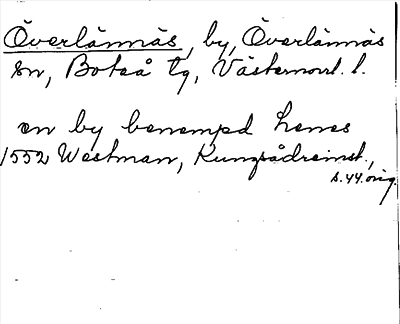 Överlännäs, by, Överlännäs
sn, Boteå tg, Västernorrl. l.
en by benempd henes
1552 Westman, Kungsådreinst.,
s. 44. orig.